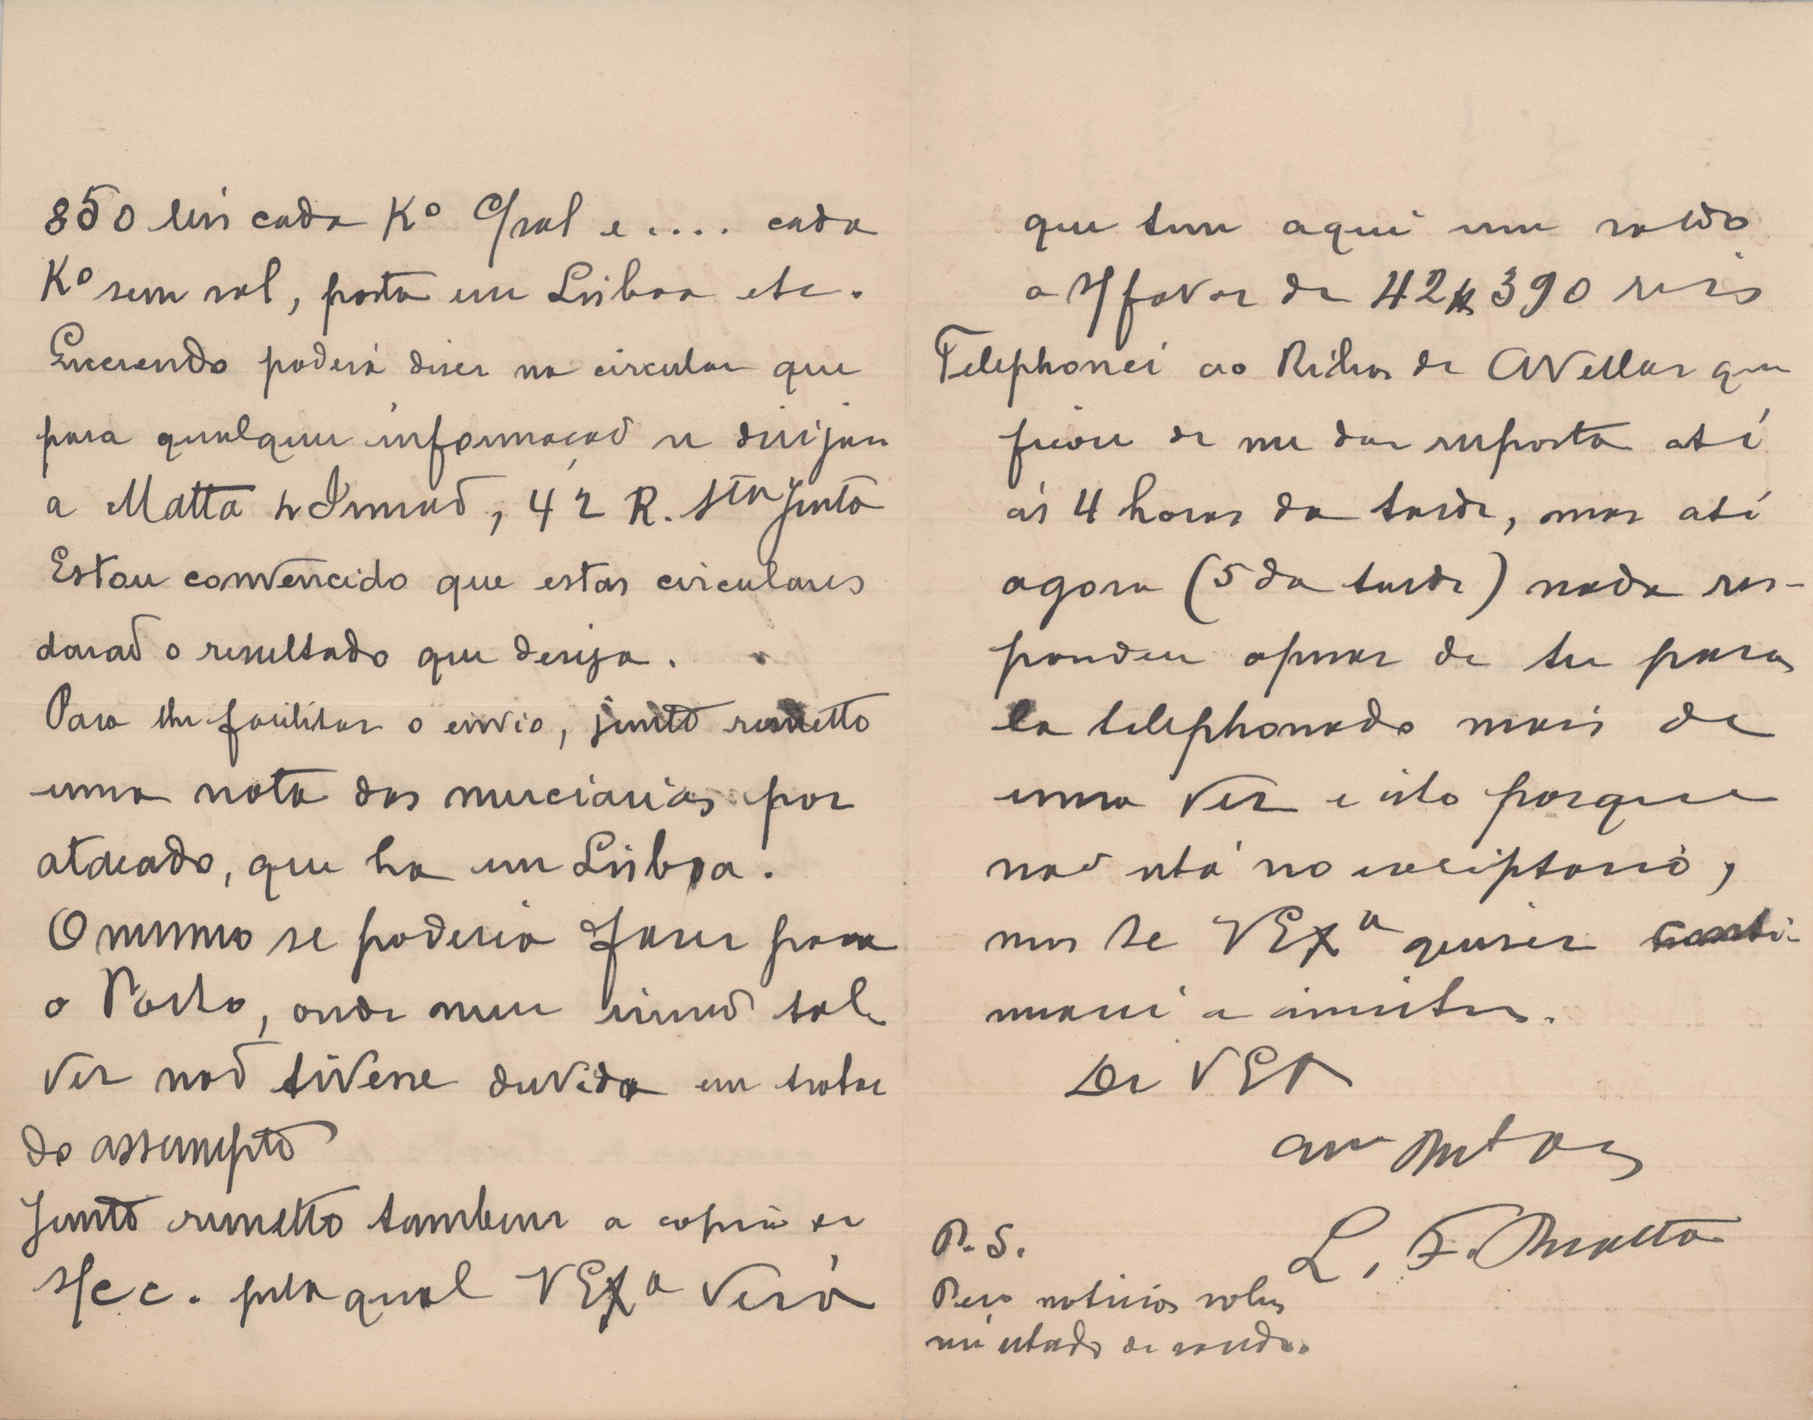 850 reis cada Kº c/sal e .... cada
Kº sem sal, posta em Lisboa etc.
Querendo poderá diser na circular que
para qualquer informação se dirijam
a Matta & Irmão, 42 R. Sta Justa
Estou convencido que estas circulares
darão o resultado que deseja.
Para lhe facilitar o envio, junto remetto
uma nota das merciarias por
atacado, que ha em Lisboa.
O mesmo se poderia faser para
o Porto, onde meu irmão tal-
ves não tivesse duvida em tratar
do assumpto
Junto remetto tambem a copia de
s/c c. pela qual VExª verá
que tem aqui um saldo
a s/favor de 42$390 reis
Telephonei ao Ribas de Avellar que
ficou de me dar resposta até
ás 4 horas da tarde, mas até
agora (5 da tarde) nada res-
pondeu apesar de ter para
la telephonado mais de
uma vez e isto porque
não está no escriptorio,
mas se VExª quiser conti-
nuarei a insistir.
De VEx
L. F. Matta
P. S.
Peço noticias sobre
seu estado de saude.